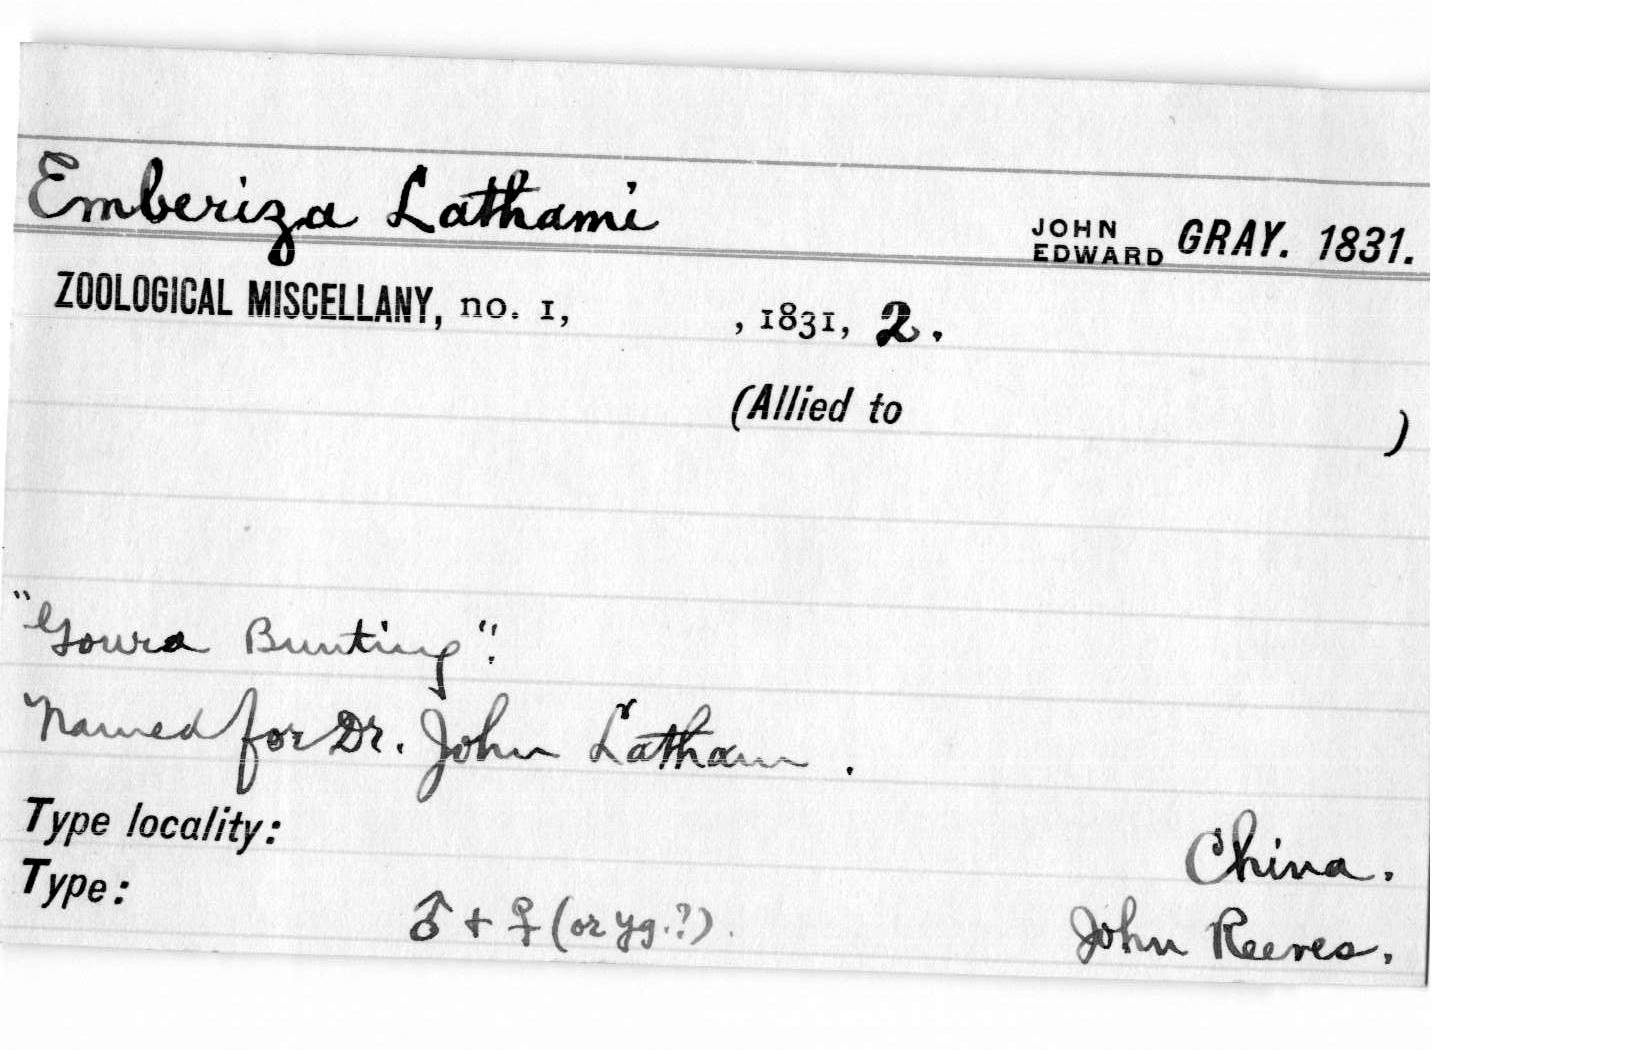 Emberiza Lathami
JOHN EDWARD GRAY. 1831.
ZOOLOGICAL MISCELLANY, no. 1, , 1831, 2.
(Allied to )
"Goura Bunting".
Named for Dr. John Latham.
Type locality: China.
Type: ♂ + ♀ (or yg.?). John Reeves.